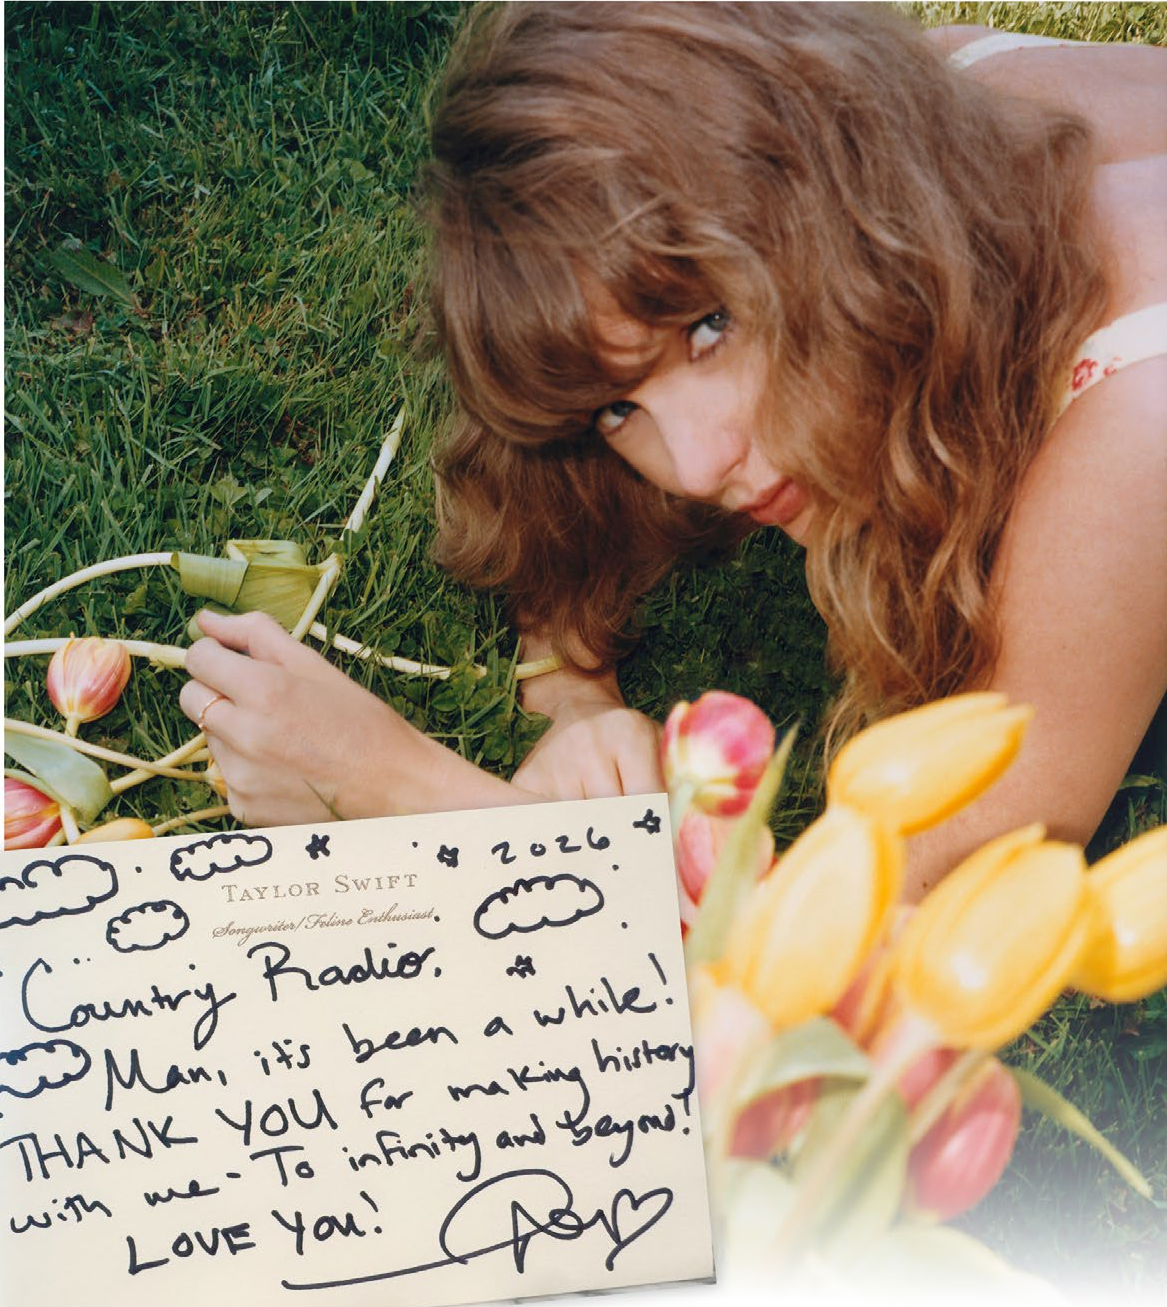 2026
TAYLOR SWIFT
Songwriter/Feline Enthusiast
Country Radio.
Man, it's been a while!
THANK YOU for making history
with me - To infinity and beyond!
LOVE YOU!